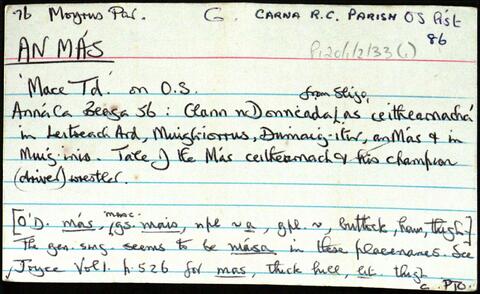 76 Moyrus Par. G CARNA R.C. PARISH OS Líst
P120/1/2/33 (1) 86
AN MÁS
'Mace Td.' on O.S.
from Sligo,
Annála Beaga 56: Clann nDonncada, as ceithearnacha
in Leitreach Ard, Muighiorrus, an Más & in
Muig-inis. Tale of the Más ceithearnach & his champion
(driver) wrestler.
[O'D. más, gs. máis, npl ~a, gpl. ~, buttock, ham, thigh.]
The gen. sing. seems to be mása in these placenames. See
Joyce Vol 1. p. 526 for mas, thick hill, lit. thigh
PTO.